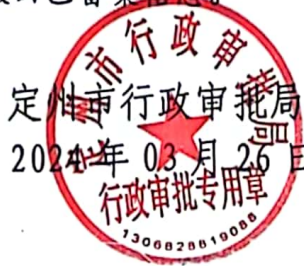 定州市行政审批局
2024年03月26日
定州市行政审批局
行政审批专用章
1306828819088